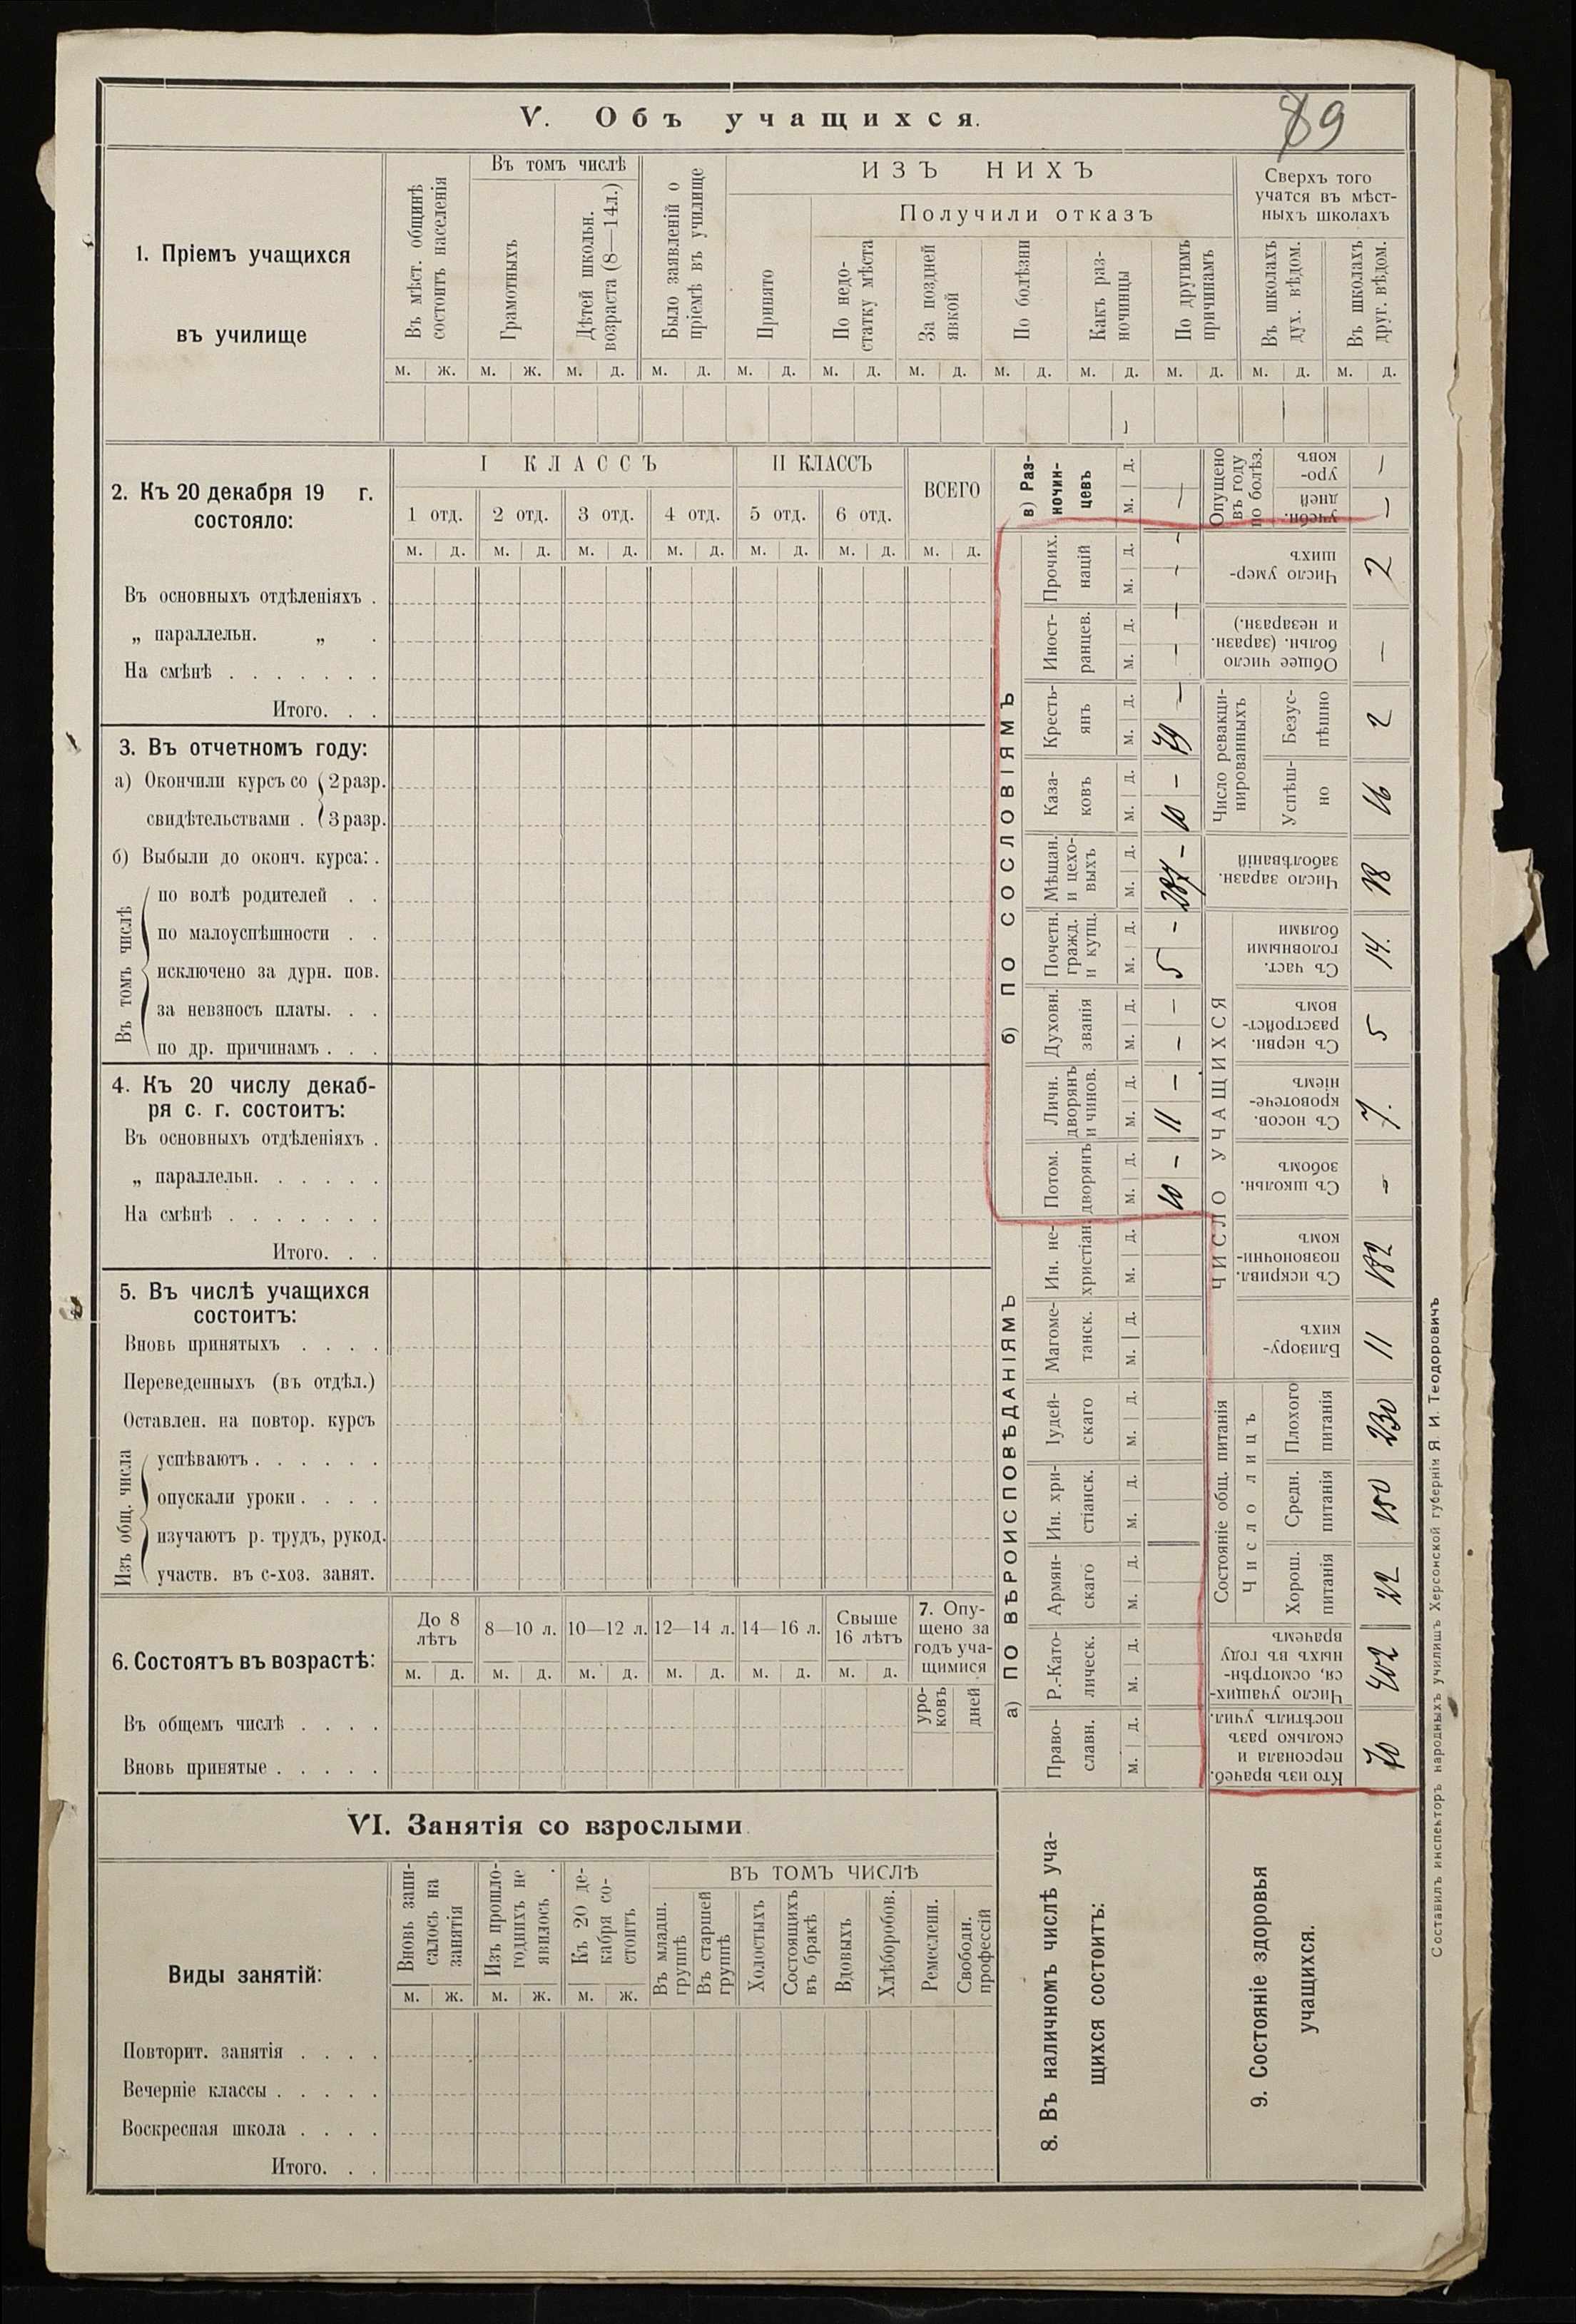 89
V. Объ учащихся.
1. Пріемъ учащихся
въ училище
Въ мѣст. общинѣ
состоитъ населенія
Въ томъ числѣ
Грамотныхъ
Дѣтей школьн.
возраста (8—14л.)
Было заявленій о
пріемѣ въ училище
ИЗЪ НИХЪ
Принято
Получили отказъ
По недо-
статку мѣста
За поздней
явкой
По болѣзни
Какъ раз-
ночинцы
По другимъ
причинамъ
Сверхъ того
учатся въ мѣст-
ныхъ школахъ
Въ школахъ
дух. вѣдом.
Въ школахъ
друг. вѣдом.
м. ж. м. ж. м. д. м. д. м. д. м. д. м. д. м. д. м. д. м. д. м. д. м. д.
2. Къ 20 декабря 19 г.
состояло:
I КЛАССЪ
II КЛАССЪ
ВСЕГО
1 отд. 2 отд. 3 отд. 4 отд. 5 отд. 6 отд.
м. д. м. д. м. д. м. д. м. д. м. д. м. д.
Въ основныхъ отдѣленіяхъ .
„ параллельн. „ .
На смѣнѣ . . . . . . .
Итого. . .
3. Въ отчетномъ году:
а) Окончили курсъ со 2 разр.
свидѣтельствами . 3 разр.
б) Выбыли до оконч. курса: .
Въ томъ числѣ
по волѣ родителей . .
по малоуспѣшности . .
исключено за дурн. пов.
за невзносъ платы. . .
по др. причинамъ . . .
4. Къ 20 числу декаб-
ря с. г. состоитъ:
Въ основныхъ отдѣленіяхъ .
„ параллельн. . . . . .
На смѣнѣ . . . . . . .
Итого. . .
5. Въ числѣ учащихся
состоитъ:
Вновь принятыхъ . . . .
Переведенныхъ (въ отдѣл.)
Оставлен. на повтор. курсъ
Изъ общ. числа
успѣваютъ . . . . . .
опускали уроки . . . .
изучаютъ р. трудъ, рукод.
участв. въ с-хоз. занят.
6. Состоятъ въ возрастѣ:
До 8
лѣтъ
8—10 л. 10—12 л. 12—14 л. 14—16 л.
Свыше
16 лѣтъ
7. Опу-
щено за
годъ уча-
щимися
м. д. м. д. м. д. м. д. м. д. м. д.
уро-
ковъ
дней
Въ общемъ числѣ . . . .
Вновь принятые . . . . .
VI. Занятія со взрослыми
Виды занятій:
Вновь запи-
салось на
занятія
Изъ прошло-
годнихъ не
явилось
Къ 20 де-
кабря со-
стоитъ
ВЪ ТОМЪ ЧИСЛѢ
Въ младш.
группѣ
Въ старшей
группѣ
Холостыхъ
Состоящихъ
въ бракѣ
Вдовыхъ
Хлѣборобов.
Ремесленн.
Свободн.
профессій
м. ж. м. ж. м. ж.
Повторит. занятія . . . .
Вечерніе классы . . . . .
Воскресная школа . . . .
Итого. . .
8. Въ наличномъ числѣ уча-
щихся состоитъ:
а) ПО ВѢРОИСПОВѢДАНІЯМЪ
Право-
славн.
м. д.
Р.-Като-
лическ.
м. д.
Армян-
скаго
м. д.
Ин. хри-
стіанск.
м. д.
Іудей-
скаго
м. д.
Магоме-
танск.
м. д.
Ин. не-
христіан.
м. д.
б) ПО СОСЛОВІЯМЪ
Потом.
дворянъ
м. д.
10 -
Личн.
дворянъ
и чинов.
м. д.
11 -
Духовн.
званія
м. д.
- -
Почетн.
гражд.
и купц.
м. д.
5 -
Мѣщан.
и цехо-
выхъ
м. д.
287 -
Каза-
ковъ
м. д.
10 -
Кресть-
янъ
м. д.
79 -
Иност-
ранцев.
м. д.
- -
Прочих.
націй
м. д.
- -
в) Раз-
ночин-
цевъ
м. д.
-
9. Состояніе здоровья
учащихся.
Кто изъ врачеб.
персонала и
сколько разъ
посѣтилъ учил.
70
Число учащих-
ся, осмотрѣн-
ныхъ въ году
врачемъ
402
Состояніе общ. питанія
Число лицъ
Хорош.
питанія
22
Средн.
питанія
150
Плохого
питанія
230
ЧИСЛО УЧАЩИХСЯ
Близору-
кихъ
11
Съ искривл.
позвоночни-
комъ
182
Съ школьн.
зобомъ
-
Съ носов.
кровотече-
ніемъ
7.
Съ нервн.
разстройст-
вомъ
5
Съ част.
головными
болями
14.
Число заразн.
заболѣваній
18
Число ревакци-
нированныхъ
Успѣш-
но
16
Безус-
пѣшно
2
Общее число
больн. (заразн.
и незаразн.)
-
Число умер-
шихъ
2
Опущено
въ году
по болѣз.
учебн.
дней
-
уро-
ковъ
-
Составилъ инспекторъ народныхъ училищъ Херсонской губерніи Я. И. Теодоровичъ